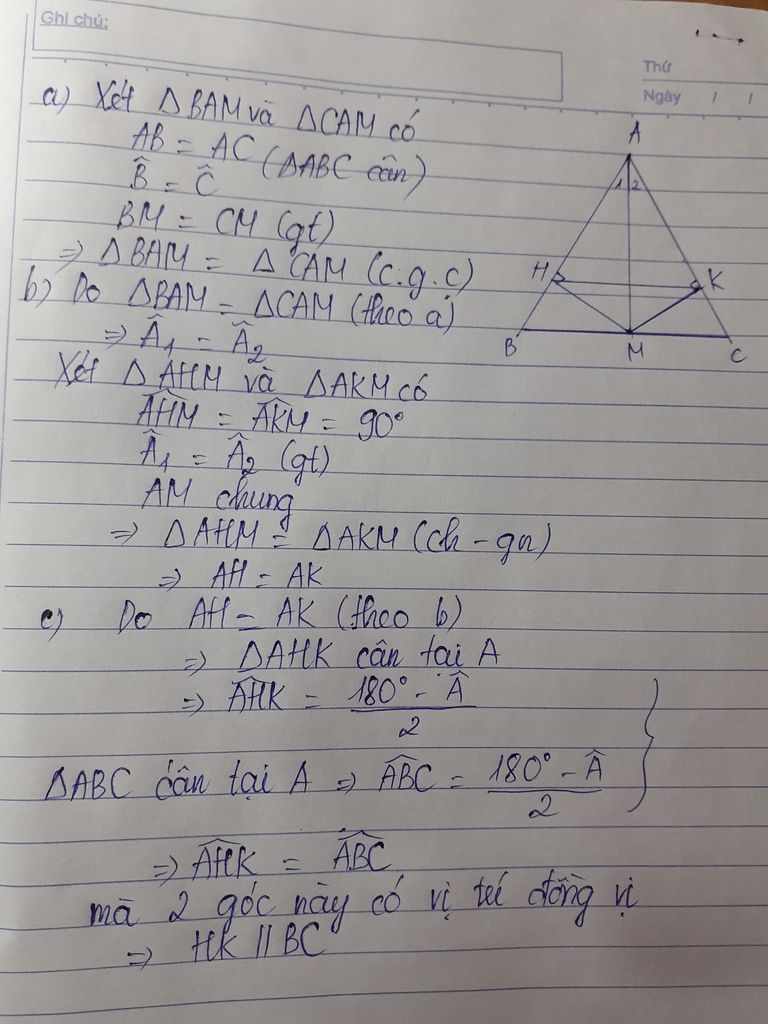 Ghi chú:
Thứ
Ngày / /
a) Xét ΔBAM và ΔCAM có
AB = AC (ΔABC cân)
B̂ = Ĉ
BM = CM (gt)
⇒ ΔBAM = ΔCAM (c.g.c)
b) Do ΔBAM = ΔCAM (theo a)
⇒ Â1 = Â2
Xét ΔAHM và ΔAKM có
AHM = AKM = 90°
Â1 = Â2 (gt)
AM chung
⇒ ΔAHM = ΔAKM (ch - gn)
⇒ AH = AK
c) Do AH = AK (theo b)
⇒ ΔAHK cân tại A
⇒ AHK = 180° - Â
2
ΔABC cân tại A ⇒ ABC = 180° - Â
2
⇒ AHK = ABC
mà 2 góc này có vị trí đồng vị
⇒ HK // BC
A
1 2
H K
B M C